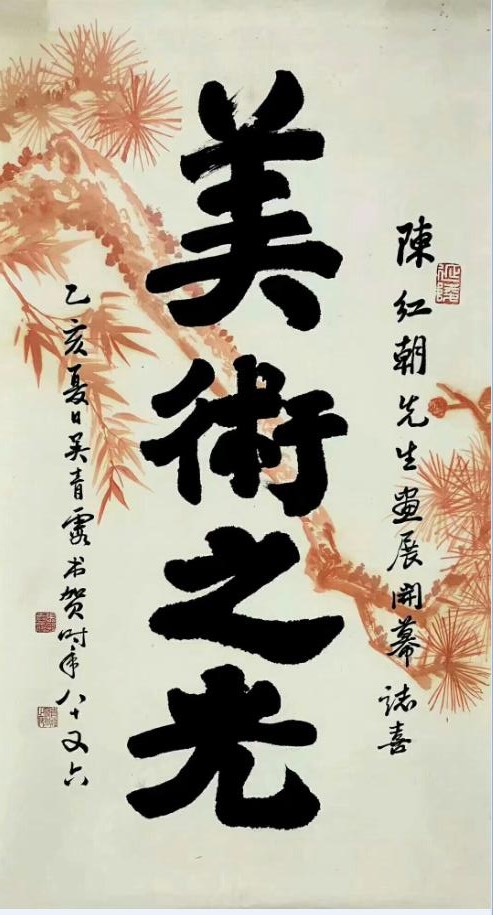 陳红朝先生畫展開幕誌喜
美術之光
乙亥夏日吴青霞书贺时年八十又六